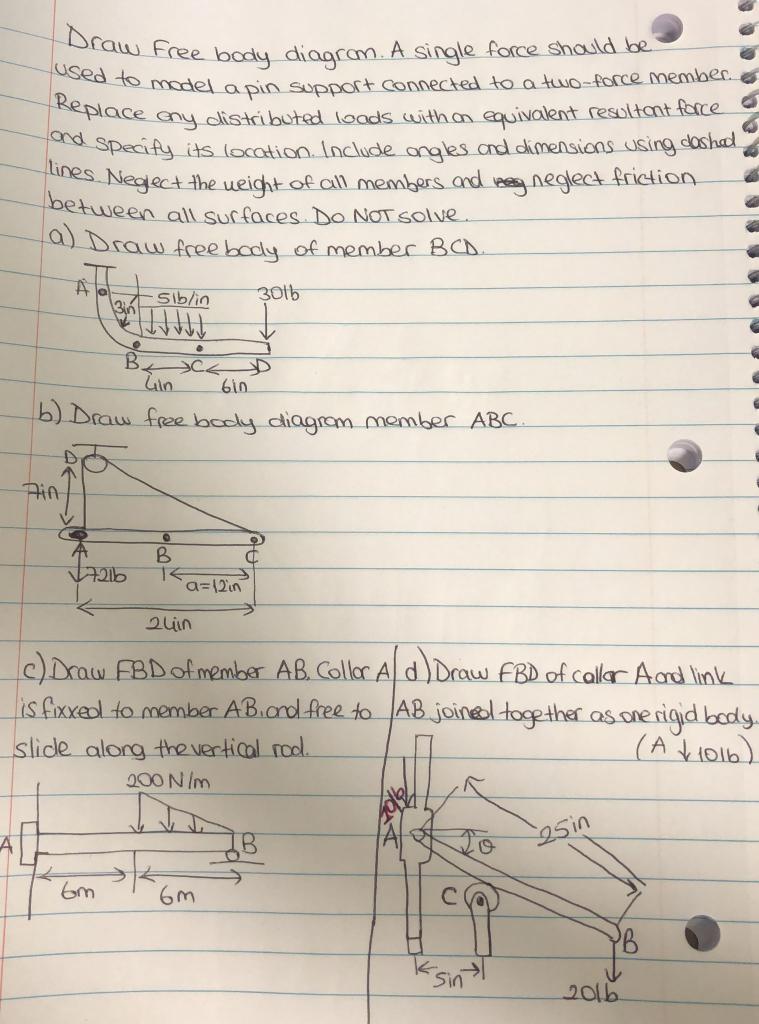 Draw Free body diagram. A single force should be
used to model a pin support connected to a two-force member.
Replace any distributed loads with an equivalent resultant force
and specify its location. Include angles and dimensions using dashed
lines. Neglect the weight of all members and neglect friction
between all surfaces. Do NOT solve.
a) Draw free body of member BCD.
A
3in
5lb/in
30lb
B
C
D
4in
6in
b) Draw free body diagram member ABC.
D
7in
A
B
C
72lb
a=12in
24in
c) Draw FBD of member AB. Collar A
is fixxed to member AB, and free to
slide along the vertical rod.
200 N/m
A
B
6m
6m
d) Draw FBD of collar A and link
AB joined together as one rigid body.
(A ↓ 10lb)
10lb
A
θ
25in
C
B
5in
20lb